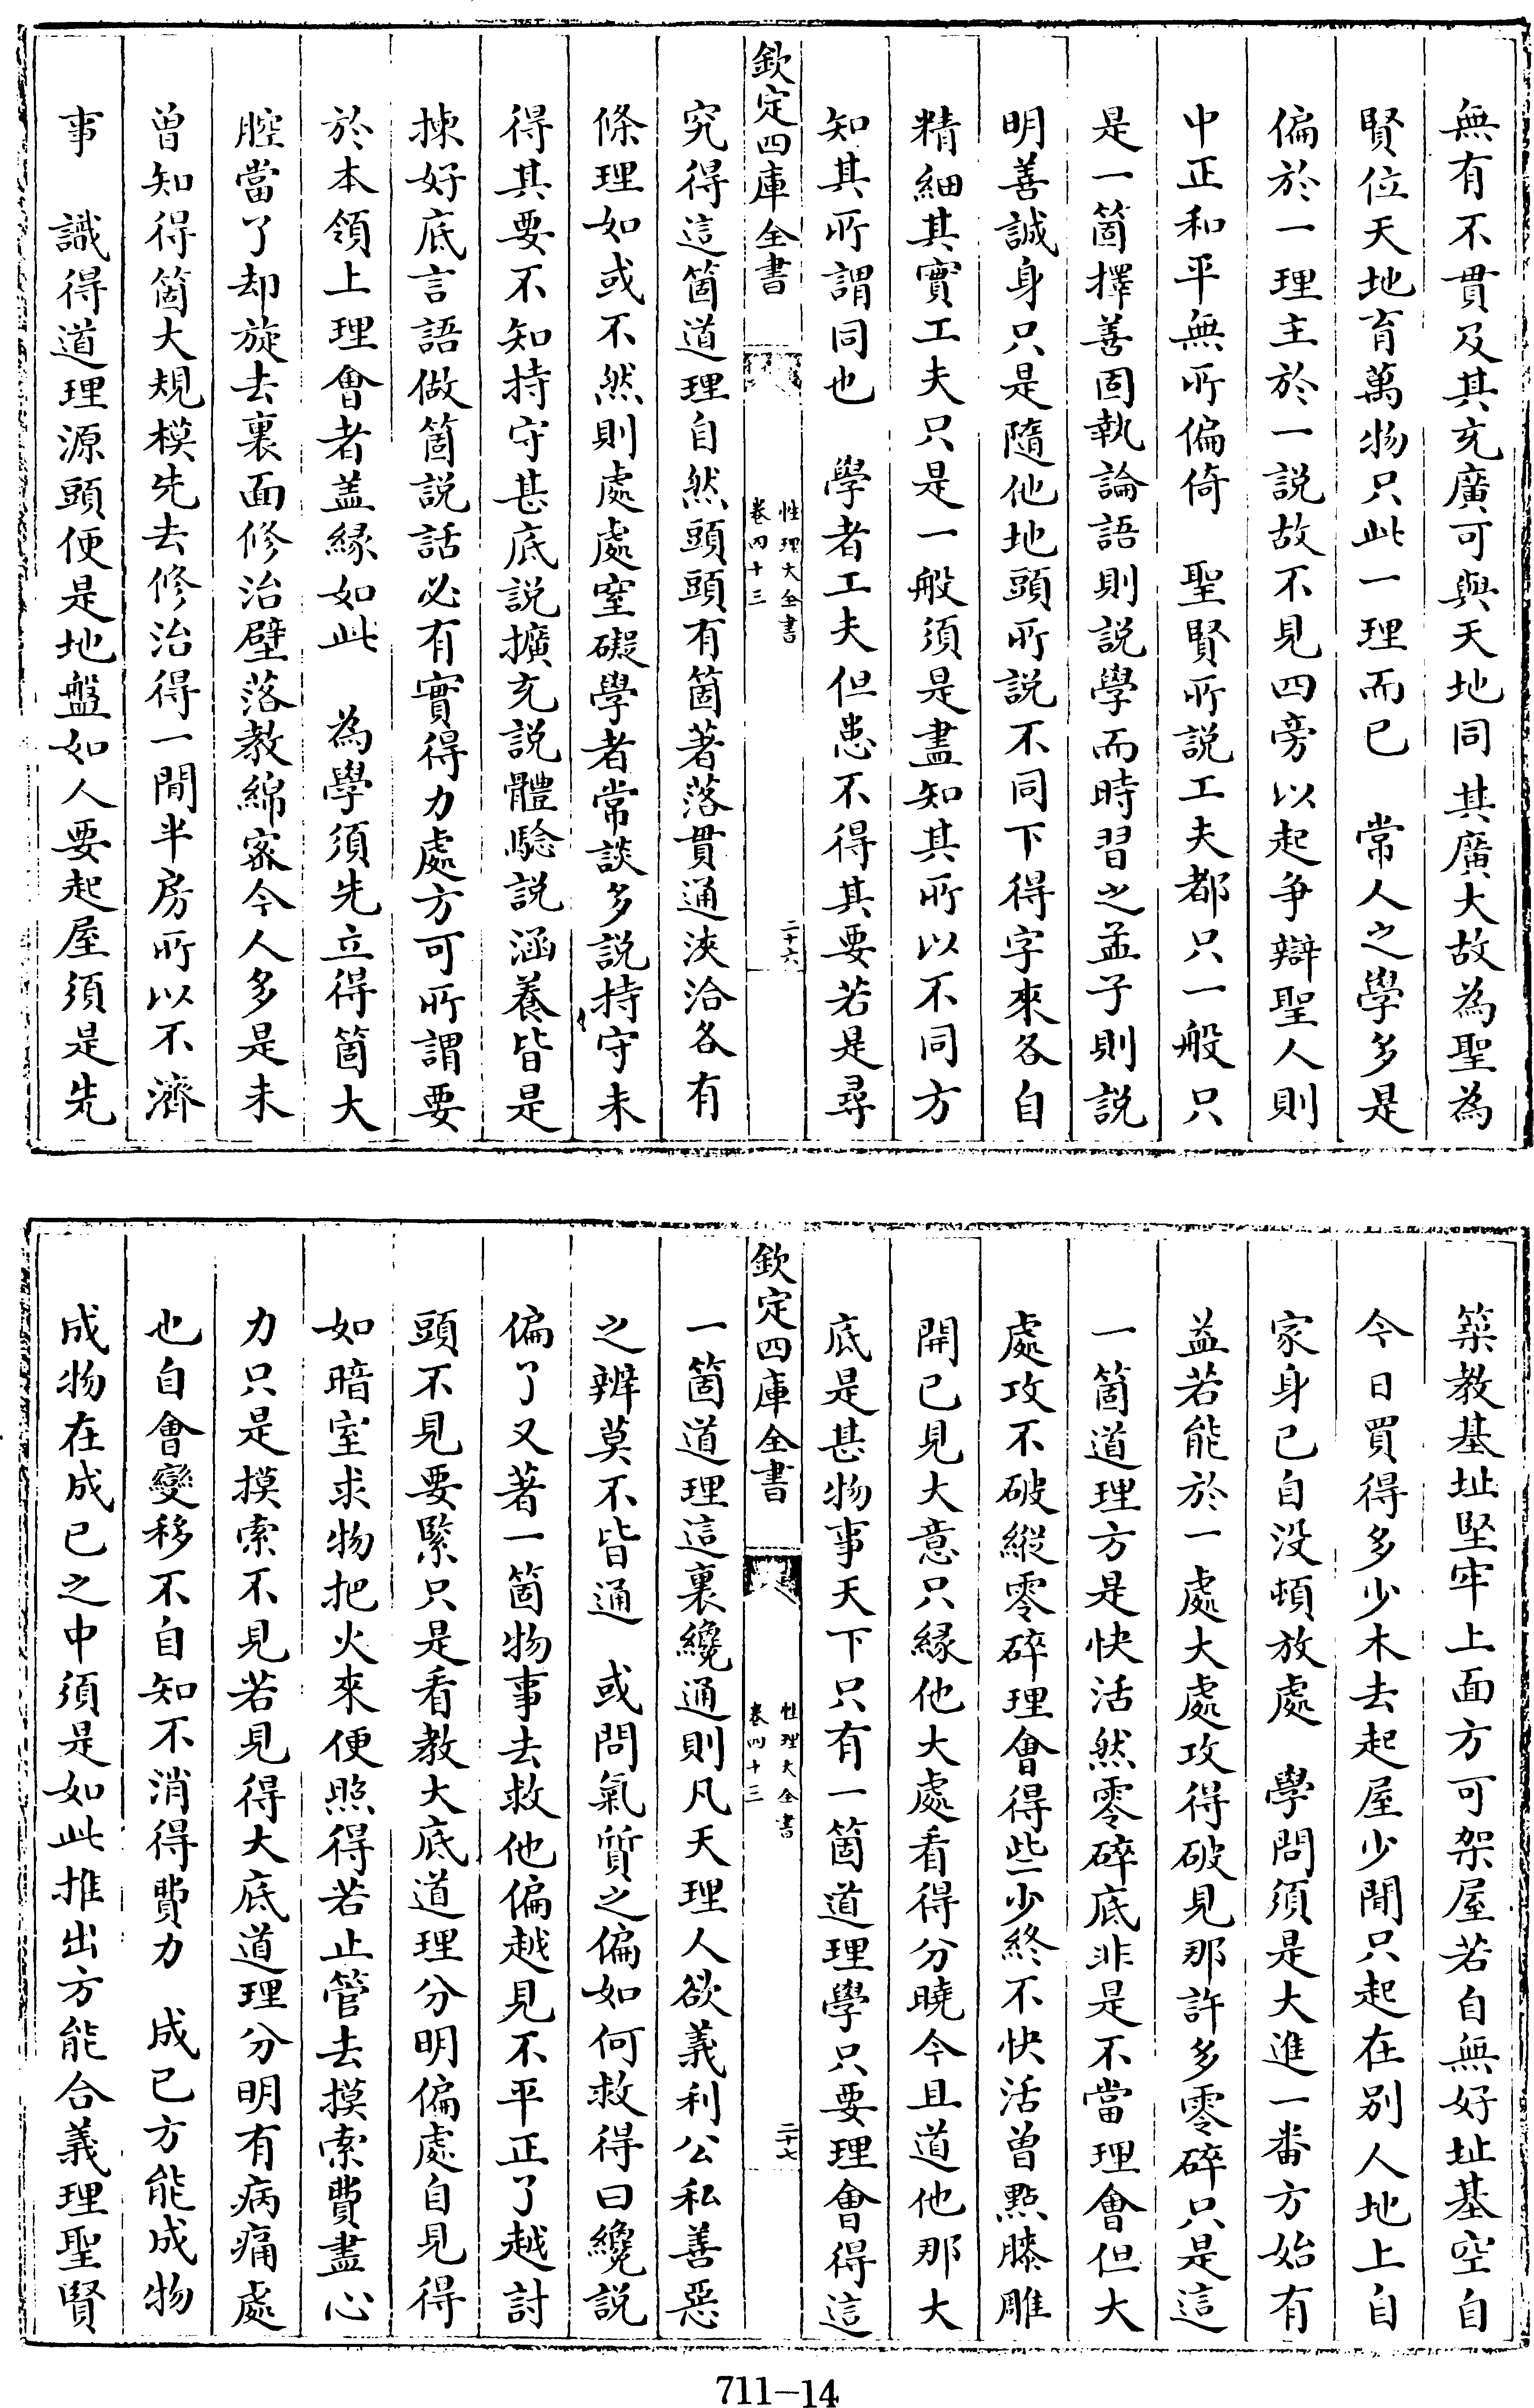 無有不貫及其充廣可與天地同其廣大故為聖為
賢位天地育萬物只此一理而已　常人之學多是
偏於一理主於一說故不見四旁以起爭辯聖人則
中正和平無所偏倚　聖賢所說工夫都只一般只
是一箇擇善固執論語則說學而時習之孟子則說
明善誠身只是隨他地頭所說不同下得字來各自
精細其實工夫只是一般須是盡知其所以不同方
知其所謂同也　學者工夫但患不得其要若是尋
欽定四庫全書
性理大全書
卷四十三
二十六
究得這箇道理自然頭頭有箇著落貫通浹洽各有
條理如或不然則處處窒礙學者常談多說持守未
得其要不知持守甚底說擴充說體驗說涵養皆是
揀好底言語做箇說話必有實得力處方可所謂要
於本領上理會者蓋緣如此　為學須先立得箇大
腔當了却旋去裏面修治壁落教綿密今人多是未
曾知得箇大規模先去修治得一間半房所以不濟
事　識得道理源頭便是地盤如人要起屋須是先
築教基址堅牢上面方可架屋若自無好址基空自
今日買得多少木去起屋少間只起在別人地上自
家身己自没頓放處　學問須是大進一番方始有
益若能於一處大處攻得破見那許多零碎只是這
一箇道理方是快活然零碎底非是不當理會但大
處攻不破縱零碎理會得些少終不快活曾點漆雕
開已見大意只緣他大處看得分曉今且道他那大
底是甚物事天下只有一箇道理學只要理會得這
欽定四庫全書
性理大全書
卷四十三
二十七
一箇道理這裏纔通則凡天理人欲義利公私善惡
之辨莫不皆通　或問氣質之偏如何救得曰纔說
偏了又著一箇物事去救他偏越見不平正了越討
頭不見要緊只是看教大底道理分明偏處自見得
如暗室求物把火來便照得若止管去摸索費盡心
力只是摸索不見若見得大底道理分明有病痛處
也自會變移不自知不消得費力　成已方能成物
成物在成已之中須是如此推出方能合義理聖賢
711-14